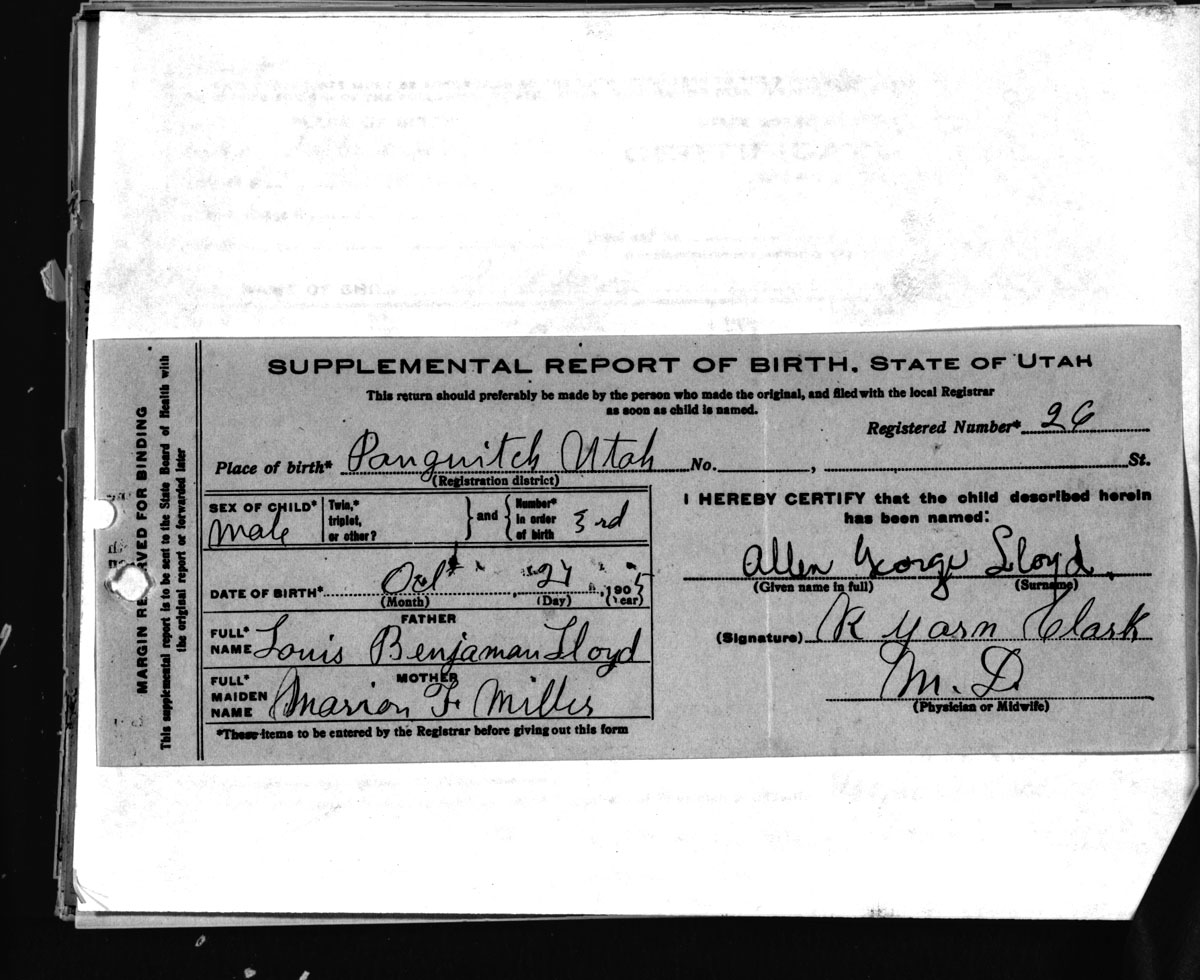 SUPPLEMENTAL REPORT OF BIRTH. STATE OF UTAH
This return should preferably be made by the person who made the original, and filed with the local Registrar
as soon as child is named.
Registered Number* 26
Place of birth* Panguitch Utah No. , St.
(Registration district)
SEX OF CHILD* Male
Twin,* triplet, or other?
and
Number* in order of birth 3rd
DATE OF BIRTH* Oct , 27 , 1905
(Month) (Day) (Year)
FATHER
FULL* NAME Louis Benjaman Lloyd
MOTHER
FULL* MAIDEN NAME Marion F. Miller
*These items to be entered by the Registrar before giving out this form
I HEREBY CERTIFY that the child described herein
has been named:
Allen George Lloyd
(Given name in full) (Surname)
(Signature) R Clark
M. D.
(Physician or Midwife)
MARGIN RESERVED FOR BINDING
This supplemental report is to be sent to the State Board of Health with
the original report or forwarded later